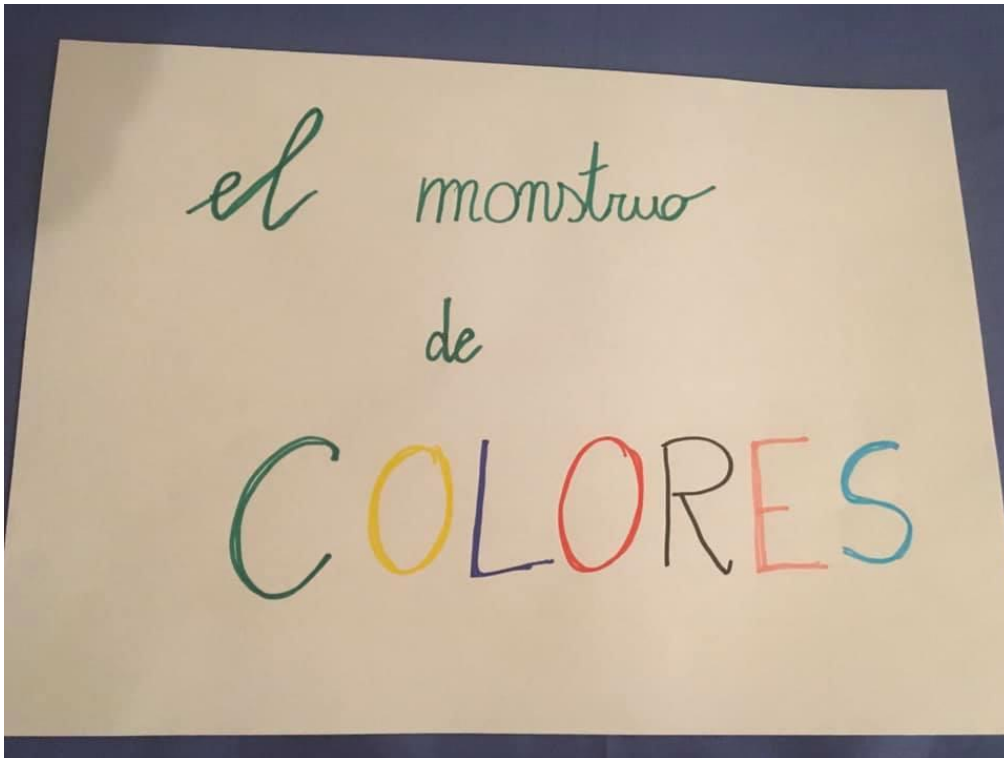 el monstruo
de
COLORES